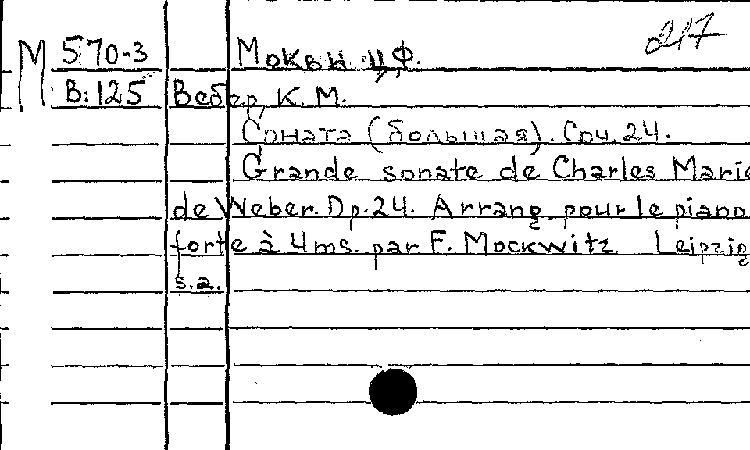 217
М 570-3 Мокви ц, Ф.
В:125 Вебер, К. М.
Соната (большая). Соч. 24.
Grande sonate de Charles Marie
de Weber. Op. 24. Arrang. pour le piano
forte à 4 ms. par F. Mockwitz Leipzig
s.a.